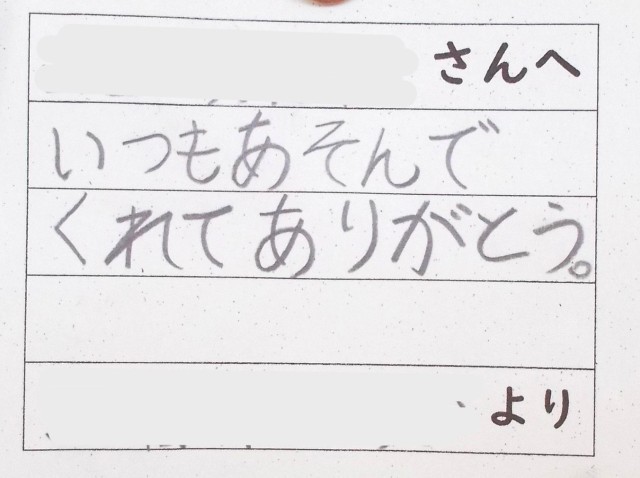 さんへ
いつもあそんで
くれてありがとう。
より